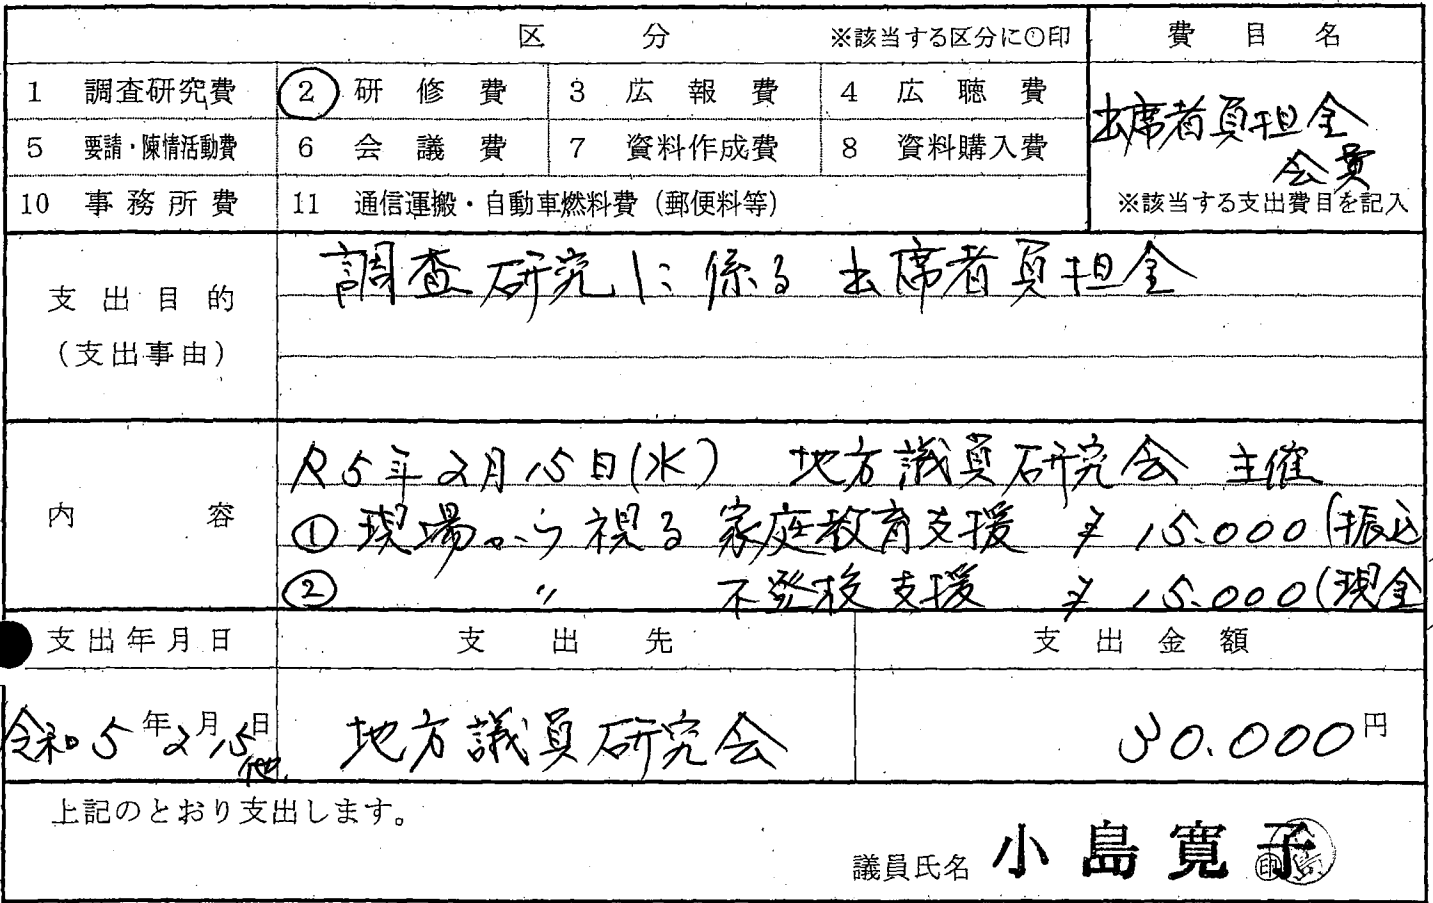 区 分 ※該当する区分に○印 費 目 名
1 調査研究費 ② 研 修 費 3 広 報 費 4 広 聴 費
出席者負担金
5 要請・陳情活動費 6 会 議 費 7 資料作成費 8 資料購入費
会費
10 事 務 所 費 11 通信運搬・自動車燃料費（郵便料等） ※該当する支出費目を記入
調査研究に係る出席者負担金
支 出 目 的
（支出事由）
R5年2月15日(水) 地方議員研究会 主催
内 容 ①現場から視る家庭教育支援 ¥15.000(振込
② 〃 不登校支援 ¥15.000(現金
支出年月日 支 出 先 支 出 金 額
令和5年2月15日 地方議員研究会 30.000円
他
上記のとおり支出します。
議員氏名 小島寛子 ㊞